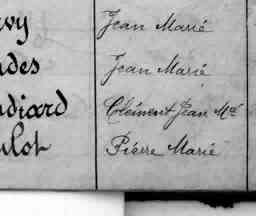 vy Jean Marié
des Jean Marié
diard Clément Jean Mié
lot Pierre Marié